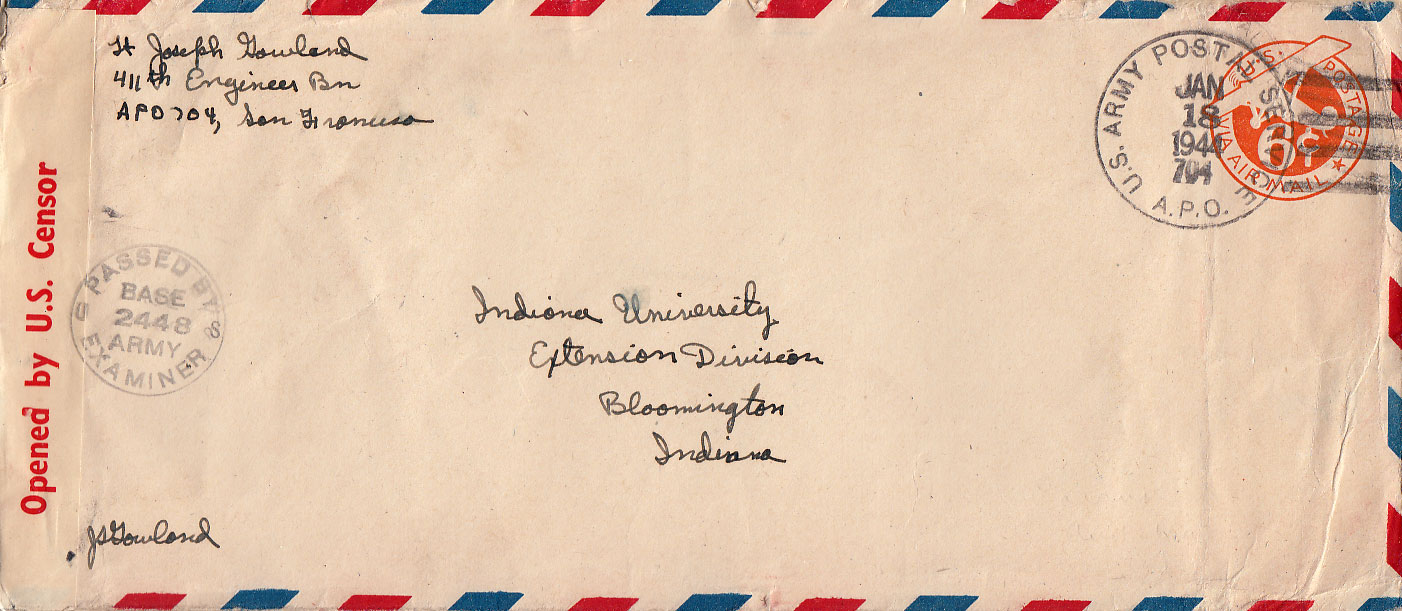 Lt Joseph Gowland
411th Engineer Bn
APO 704, San Francisco
U.S. ARMY POSTAL SERVICE
JAN
18
1944
704
A.P.O.
U.S. POSTAGE
6¢
VIA AIR MAIL
Opened by U.S. Censor
PASSED BY
BASE
2448
ARMY
EXAMINER
Indiana University
Extension Division
Bloomington
Indiana
JSGowland